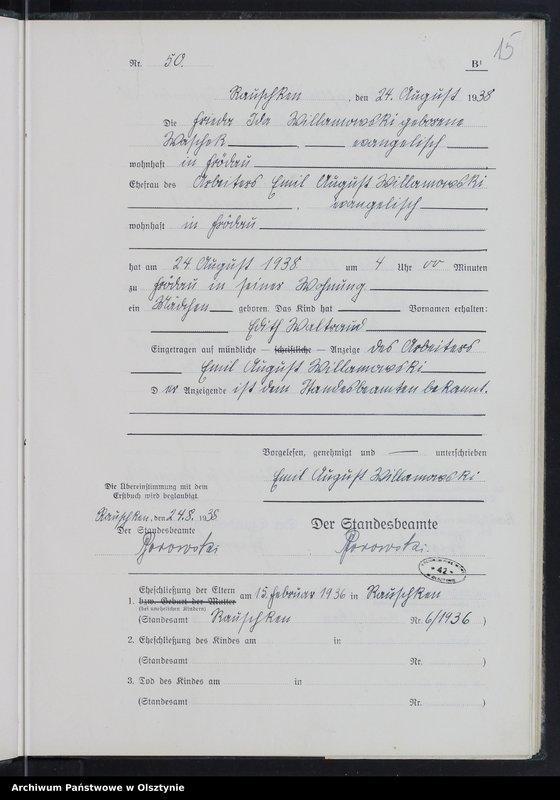 15
Nr. 50.
B¹
Rauschken, den 24. August 1938
Die Frieda Ida Willamowski geborene
Waschek evangelisch
wohnhaft in Frödau
Ehefrau des Arbeiters Emil August Willamowski
, evangelisch
wohnhaft in Frödau
hat am 24. August 1938 um 4 Uhr 00 Minuten
zu Frödau in seiner Wohnung
ein Mädchen geboren. Das Kind hat Vornamen erhalten:
Edith Waltraud
Eingetragen auf mündliche – schriftliche – Anzeige des Arbeiters
Emil August Willamowski
D er Anzeigende ist dem Standesbeamten bekannt.
Vorgelesen, genehmigt und unterschrieben
Emil August Willamowski
Die Übereinstimmung mit dem
Erstbuch wird beglaubigt.
Rauschken, den 24.8. 1938
Der Standesbeamte
Der Standesbeamte
42
1. Eheschließung der Eltern
bzw. Geburt der Mutter
(bei unehelichen Kindern)
am 15 Februar 1936 in Rauschken
(Standesamt Rauschken Nr. 6/1936 )
2. Eheschließung des Kindes am in
(Standesamt Nr. )
3. Tod des Kindes am in
(Standesamt Nr. )
Archiwum Państwowe w Olsztynie